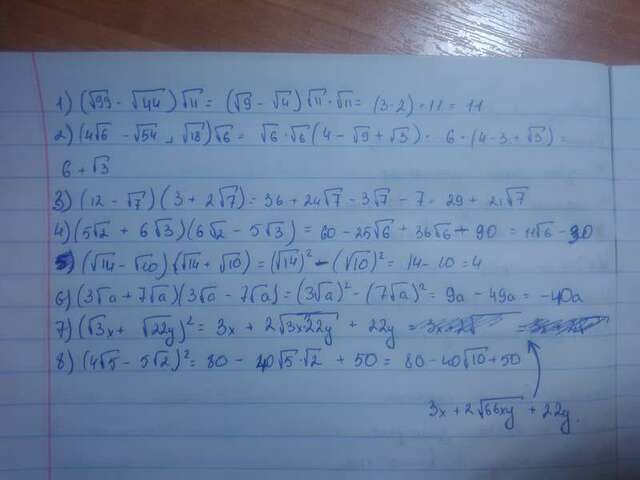 1) (√99 - √44)√11 = (√9 - √4)√11·√11 = (3-2)·11 = 11
2) (4√6 - √54 + √18)√6 = √6·√6(4 - √9 + √3) = 6·(4-3+√3) =
6+√3
3) (12 - √7)(3 + 2√7) = 36 + 24√7 - 3√7 - 7 = 29 + 21√7
4) (5√2 + 6√3)(6√2 - 5√3) = 60 - 25√6 + 36√6 + 90 = 11√6 - 30
5) (√14 - √10)(√14 + √10) = (√14)² - (√10)² = 14 - 10 = 4
6) (3√a + 7√a)(3√a - 7√a) = (3√a)² - (7√a)² = 9a - 49a = -40a
7) (√3x + √22y)² = 3x + 2√3x·22y + 22y =
8) (4√5 - 5√2)² = 80 - 40√5·√2 + 50 = 80 - 40√10 + 50
3x + 2√66xy + 22y.